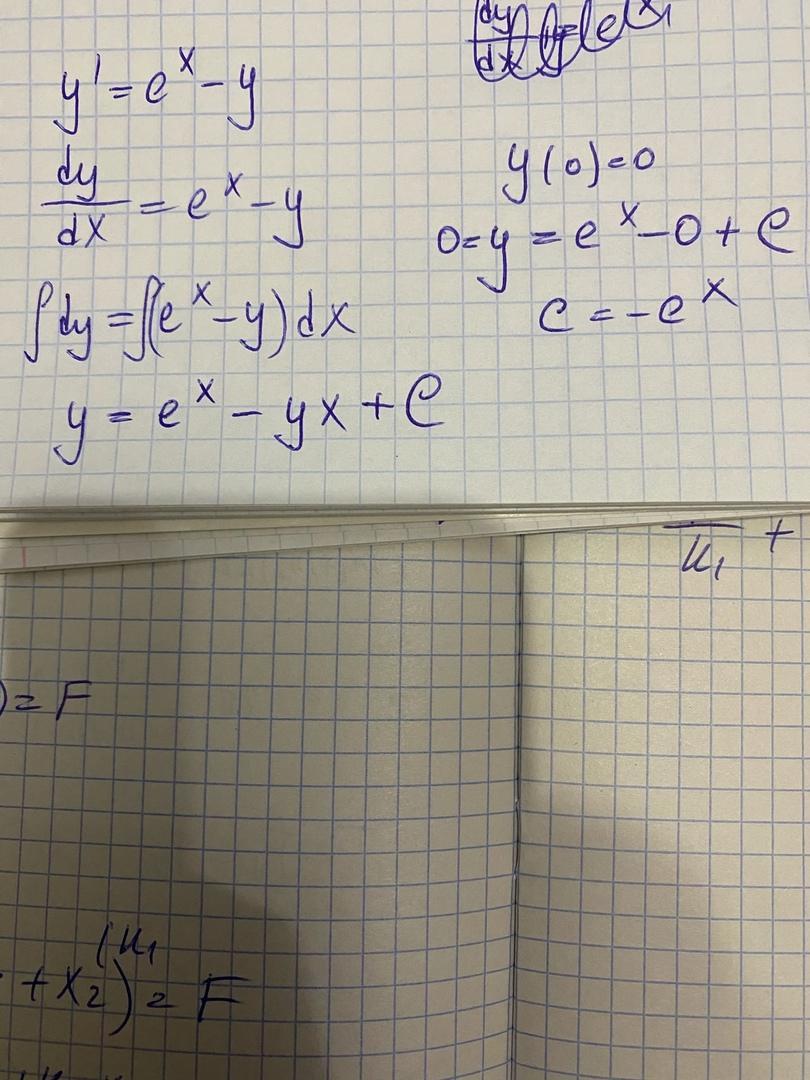 y' = e^x - y
dy/dx = e^x - y
∫dy = ∫(e^x - y)dx
y = e^x - yx + C
y(0) = 0
0 = y = e^x - 0 + C
c = -e^x
u₁ +
) = F
(u₁
+ x₂) = F